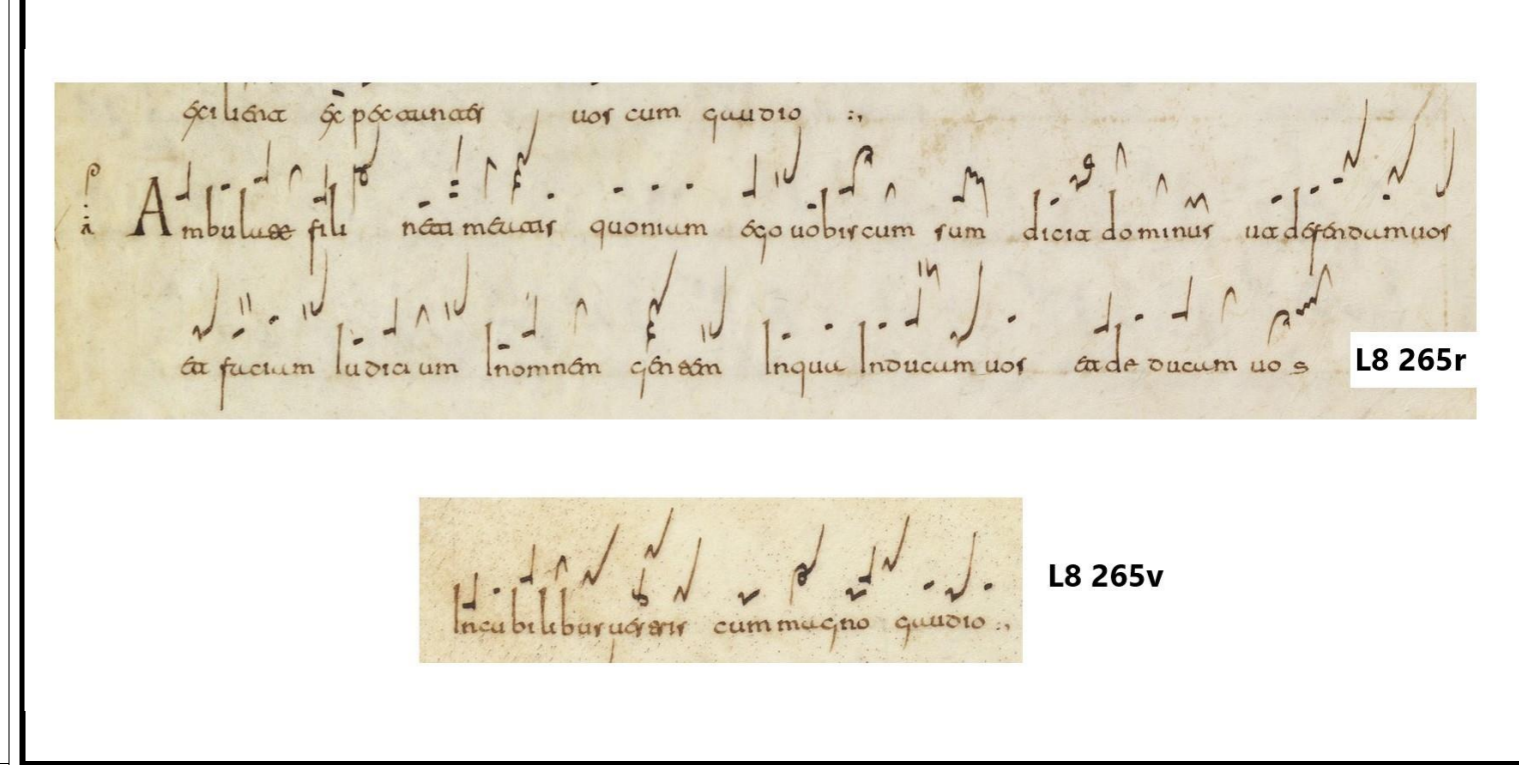 uos cum gaudio :,
Ambulate fili ne timeatis quoniam ego uobiscum sum dicit dominus ut defendam uos
et faciam Iudicium In omnem gentem In qua Inducam uos et deducam uos
L8 265r
In cubilibus uestris cum magno gaudio :,
L8 265v